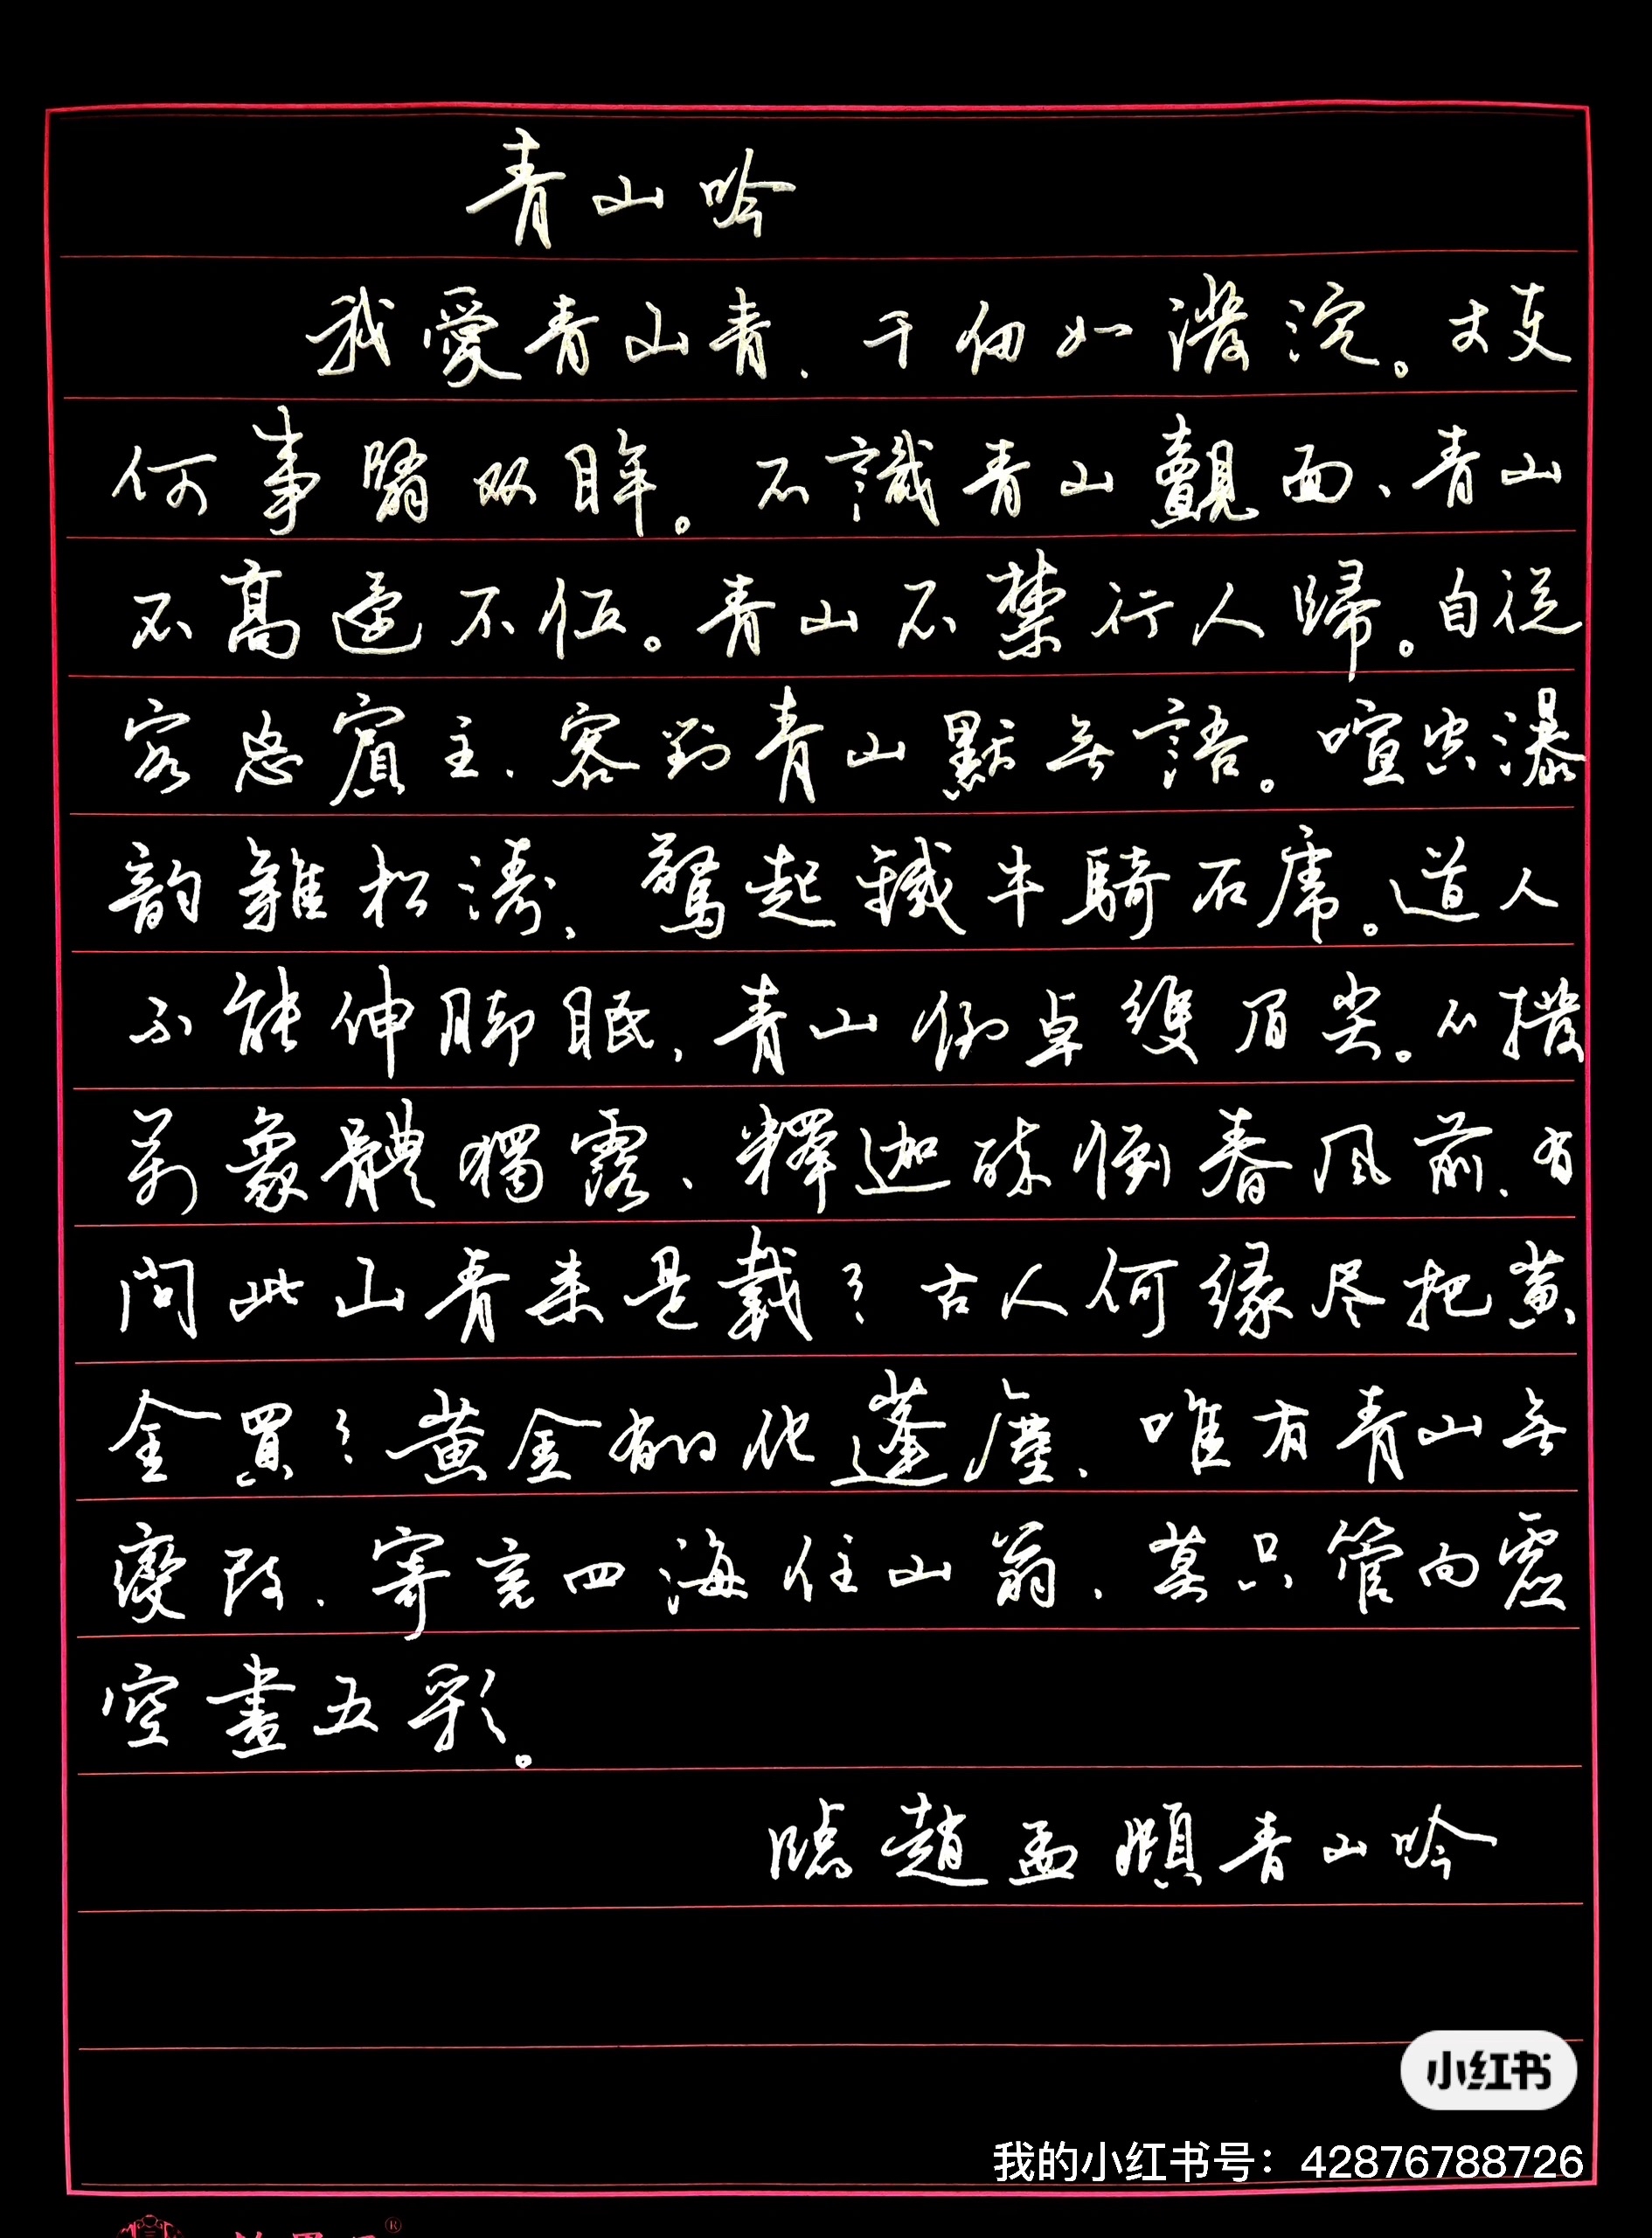 青山吟
我愛青山青、千仞如潑淀。丈夫
何事翳双眸。不識青山覿面、青山
不高還不低。青山不禁行人歸。自從
客忘賓主、客對青山默無語。喧宏瀑
韵雜松濤、驚起鐵牛騎石虎。道人
不能伸脚眠、青山倒卓雙眉尖。不撥
萬象體獨露、釋迦醉倒春風前、有
問此山青来是載？古人何緣尽把黄
金買？黄金有的化蓬塵、唯有青山無
變改、寄言四海住山翁、莫只管向虚
空畫五彩。
臨趙孟頫青山吟
小红书
我的小红书号：42876788726